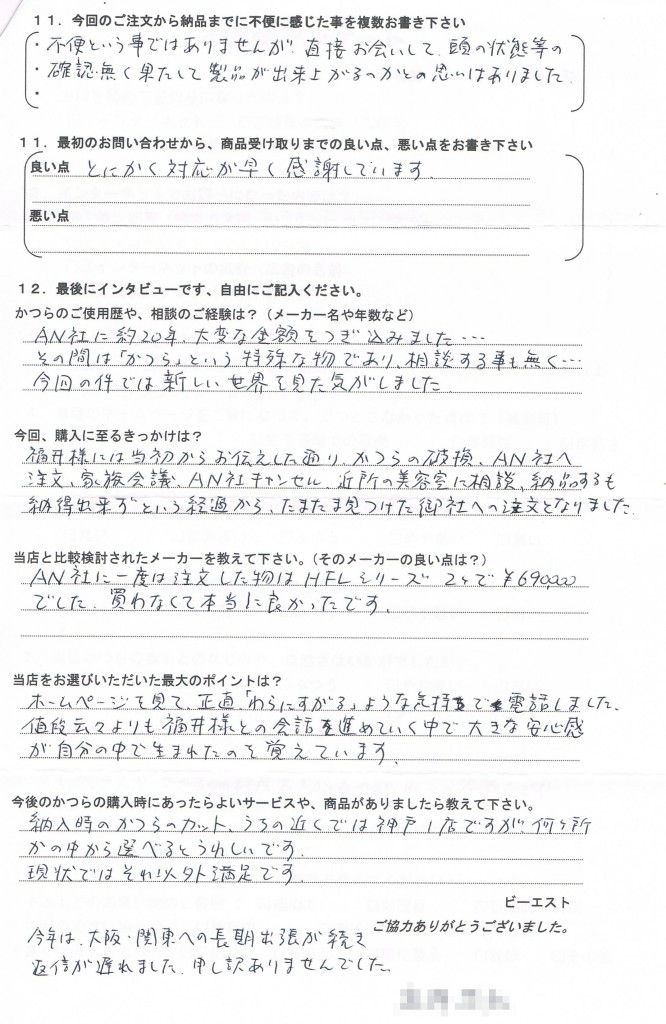 11. 今回のご注文から納品までに不便に感じた事を複数お書き下さい
・不便という事ではありませんが、直接お会いして、頭の状態等の
・確認無く果たして製品が出来上がるのかとの思いはありました.
・
11. 最初のお問い合わせから、商品受け取りまでの良い点、悪い点をお書き下さい
良い点 とにかく対応が早く感謝しています.
悪い点
12. 最後にインタビューです、自由にご記入ください。
かつらのご使用歴や、相談のご経験は？（メーカー名や年数など）
AN社に約20年、大変な金額をつぎ込みました…
その間は「かつら」という特殊な物であり、相談する事も無く…
今回の件では新しい世界を見た気がしました.
今回、購入に至るきっかけは？
福井様には当初からお伝えした通り、かつらの破損、AN社へ
注文、家族会議、AN社キャンセル、近所の美容室に相談、納品するも
納得出来ずという経過から、たまたま見つけた御社への注文となりました.
当店と比較検討されたメーカーを教えて下さい。（そのメーカーの良い点は？）
AN社に一度は注文した物はHFLシリーズ 2ヶで¥690,000
でした. 買わなくて本当に良かったです.
当店をお選びいただいた最大のポイントは？
ホームページを見て、正直「わらにすがる」ような気持で電話しました.
値段云々よりも福井様との会話を進めていく中で大きな安心感
が自分の中で生まれたのを覚えています.
今後のかつらの購入時にあったらよいサービスや、商品がありましたら教えて下さい。
納入時のかつらのカット、うちの近くでは神戸1店ですが、何ヶ所
かの中から選べるとうれしいです.
現状ではそれ以外満足です
ビーエスト
ご協力ありがとうございました。
今年は、大阪・関東への長期出張が続き
返信が遅れました. 申し訳ありませんでした.